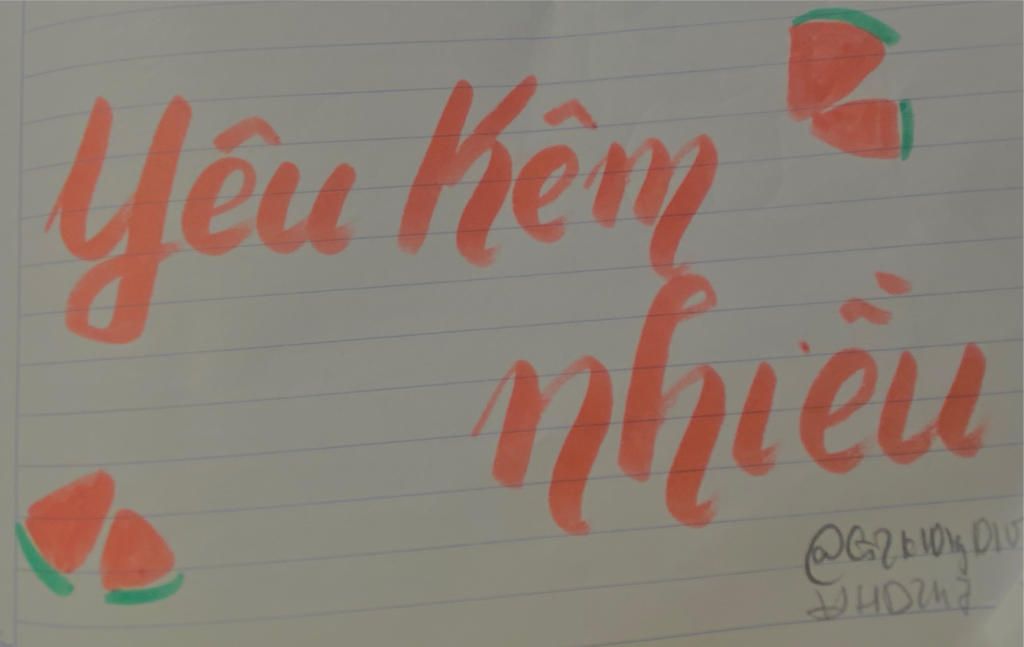 Yêu Kêm
nhiều